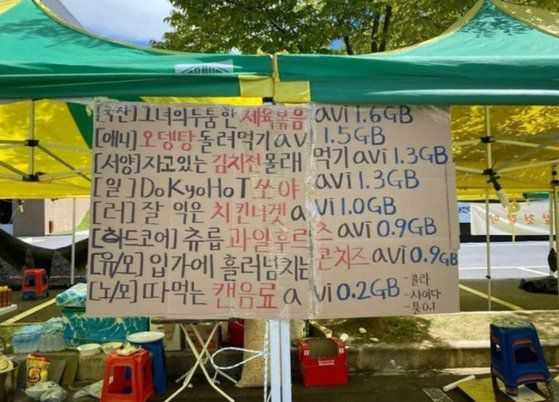 [국산] 그녀의 두툼한 제육볶음 avi 1.6GB
[애니] 오뎅탕 돌려먹기 avi 1.5GB
[서양] 자고있는 김치전 몰래 먹기 avi 1.3GB
[일] DoKyoHoT 쏘야 avi 1.3GB
[러] 잘 익은 치킨너겟 avi 1.0GB
[하드코어] 츄릅 과일후르츠 avi 0.9GB
[유/모] 입가에 흘러넘치는 콘치즈 avi 0.9GB
[노/모] 따먹는 캔음료 avi 0.2GB
- 콜라
- 사이다
- 물 0.1